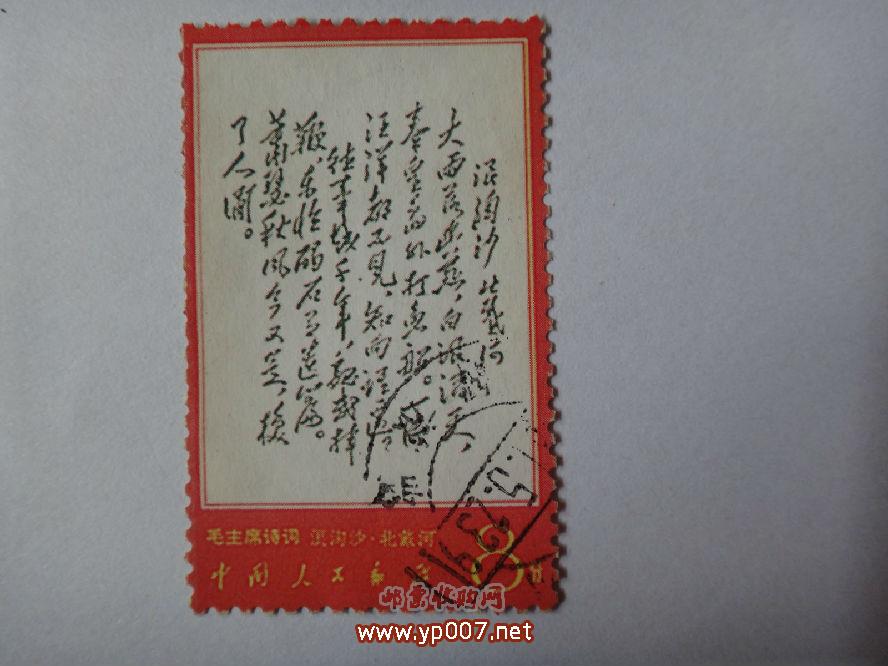 浪淘沙 北戴河
大雨落幽燕，白浪滔天，
秦皇岛外打鱼船。一片
汪洋都不见，知向谁边
往事越千年，魏武挥
鞭，东临碣石有遗篇。
萧瑟秋风今又是，换
了人间。
毛主席诗词 浪淘沙·北戴河
中国人民邮政 8分
邮票收购网
www.yp007.net